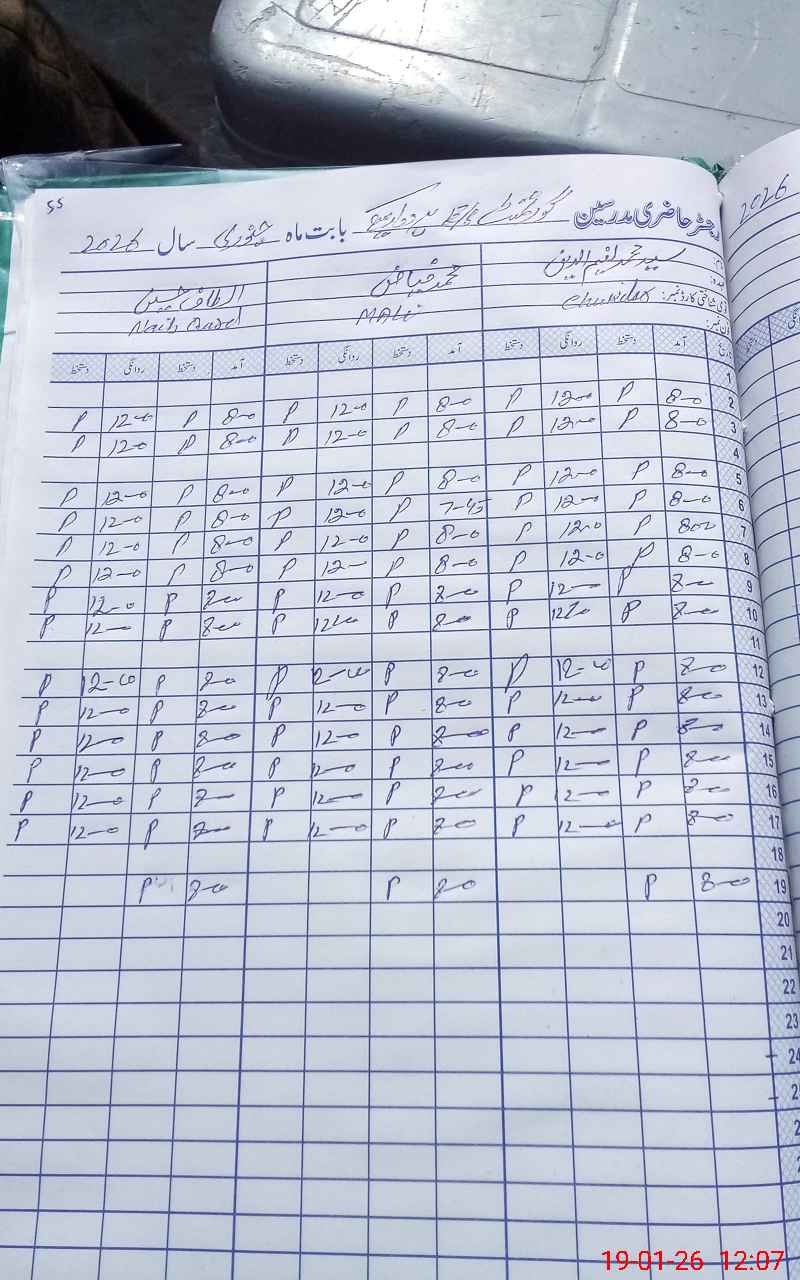 55
رجسٹر حاضری مدرسین بابت ماہ جنوری سال 2026
2026
سید محمد نعیم الدین محمد فیاض الطاف حسین
Chowidar MALi Naib Qasid
تاریخ آمد دستخط روانگی دستخط آمد دستخط روانگی دستخط آمد دستخط روانگی دستخط
1
2 8-0 P 12-0 P 8-0 P 12-0 P 8-0 P 12-0 P
3 8-0 P 12-0 P 8-0 P 12-0 P 8-0 P 12-0 P
4
5 8-0 P 12-0 P 8-0 P 12-0 P 8-0 P 12-0 P
6 8-0 P 12-0 P 7-45 P 12-0 P 8-0 P 12-0 P
7 800 P 12-0 P 8-0 P 12-0 P 8-0 P 12-0 P
8 8-0 P 12-0 P 8-0 P 12- P 8-0 P 12-0 P
9 8-0 P 12-0 P 8-0 P 12-0 P 8-0 P 12-0 P
10 8-0 P 12-0 P 8-0 P 12-0 P 8-0 P 12-0 P
11
12 8-0 P 12-0 P 8-0 P 12-0 P 8-0 P 12-0 P
13 8-0 P 12-0 P 8-0 P 12-0 P 8-0 P 12-0 P
14 8-0 P 12-0 P 8-0 P 12-0 P 8-0 P 12-0 P
15 8-0 P 12-0 P 8-0 P 12-0 P 8-0 P 12-0 P
16 8-0 P 12-0 P 8-0 P 12-0 P 8-0 P 12-0 P
17 8-0 P 12-0 P 8-0 P 12-0 P 8-0 P 12-0 P
18
19 8-0 P 8-0 P 8-0 P
20
21
22
23
24
19-01-26 12:07